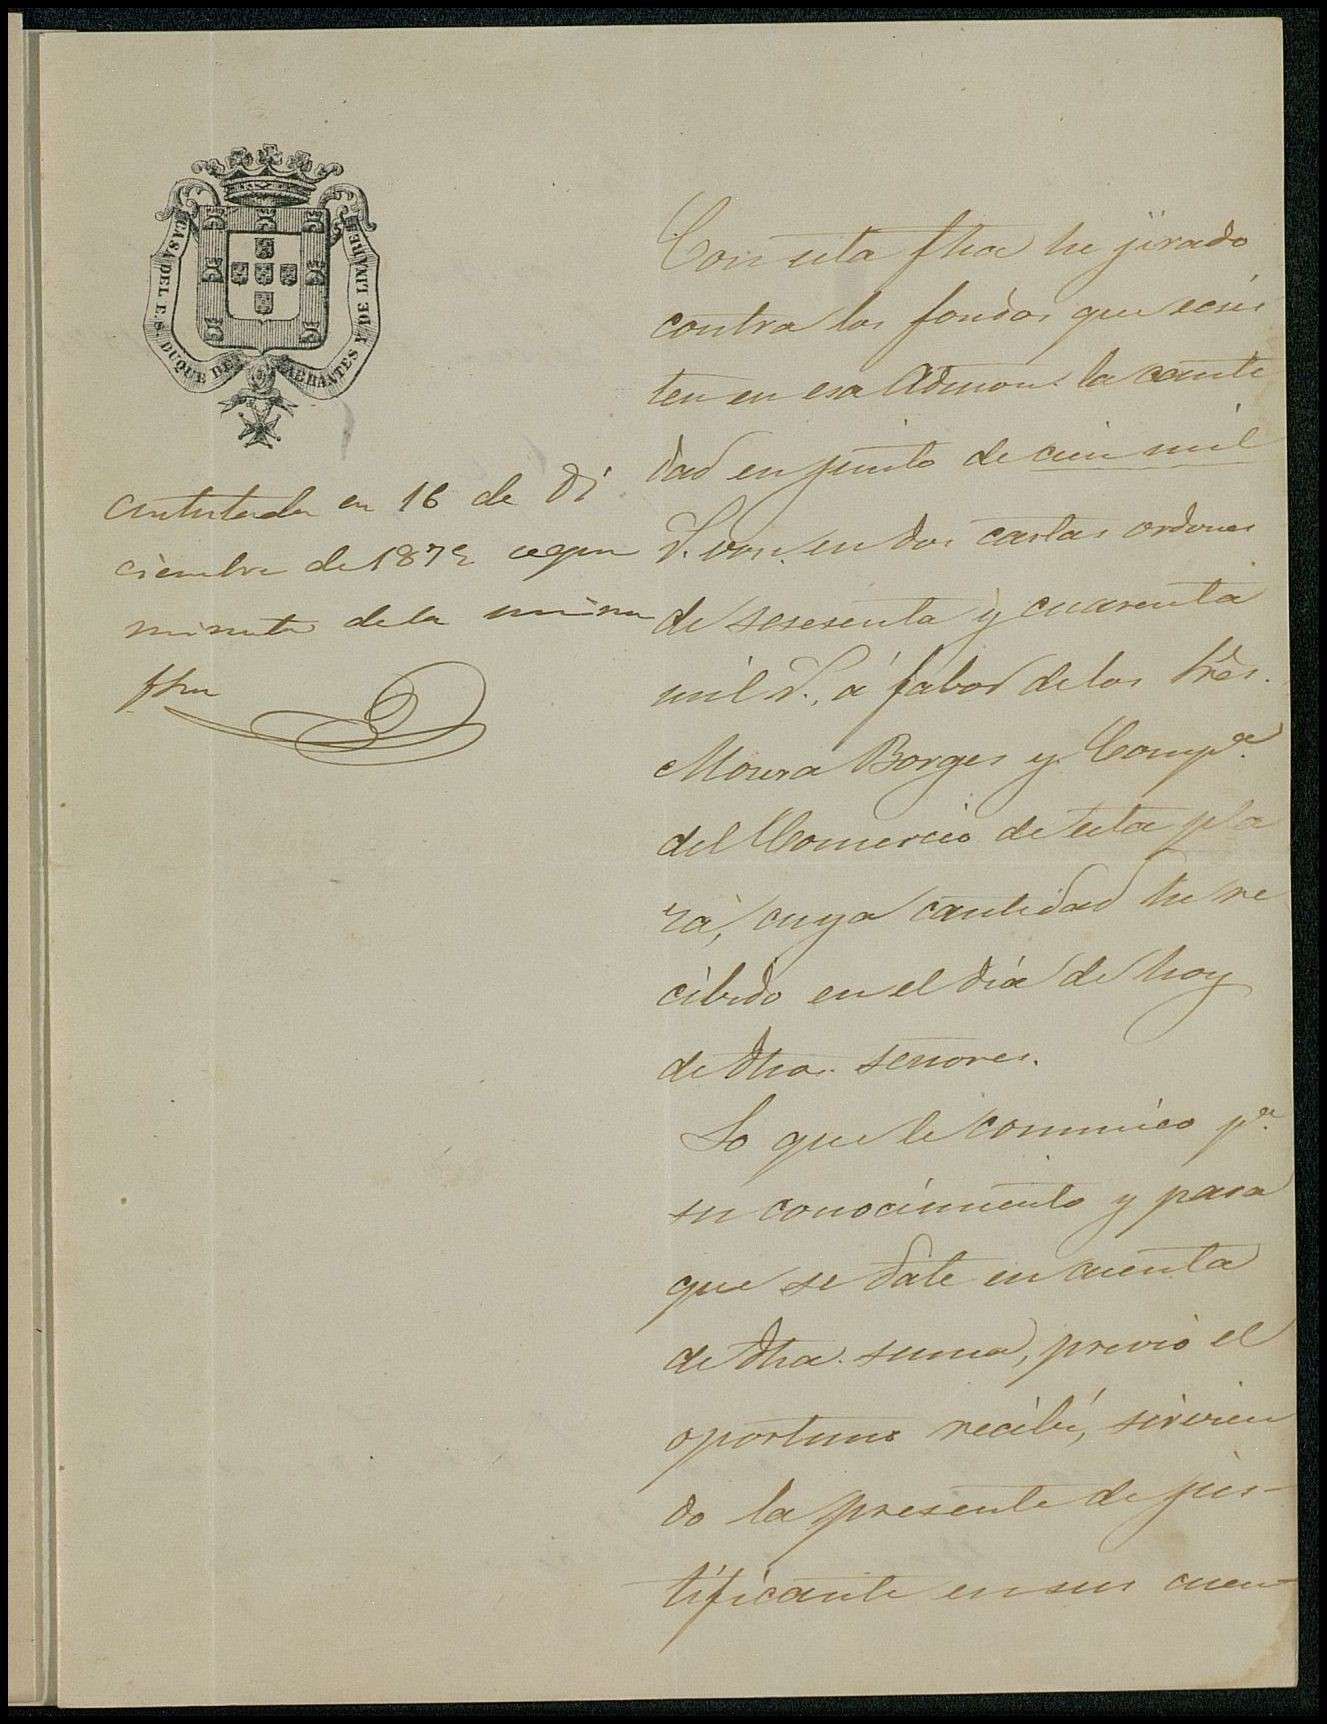 CASA DEL E. S. DUQUE DE ABRANTES Y DE LINARES
Contestada en 16 de Di
ciembre de 1872 segun
minuta de la misma
fha
Con esta fha he jirado
contra los fondos que ecsis
ten en esa Admon. la canti
dad en junto de cien mil
r. von. en dos cartas ordenes
de sesesenta y cuarenta
mil r., á fabor de los Srês.
Moura Borges y Compª.
del Comercio de esta pla
za, cuya cantidad he re
cibido en el dia de hoy
de dhos. señores.
Lo que le comunico pª.
su conocimiento y para
que se date en cuenta
de dha. suma, previo el
oportuno recibí, sirvien
do la presente de jus-
tificante en sus cuen-